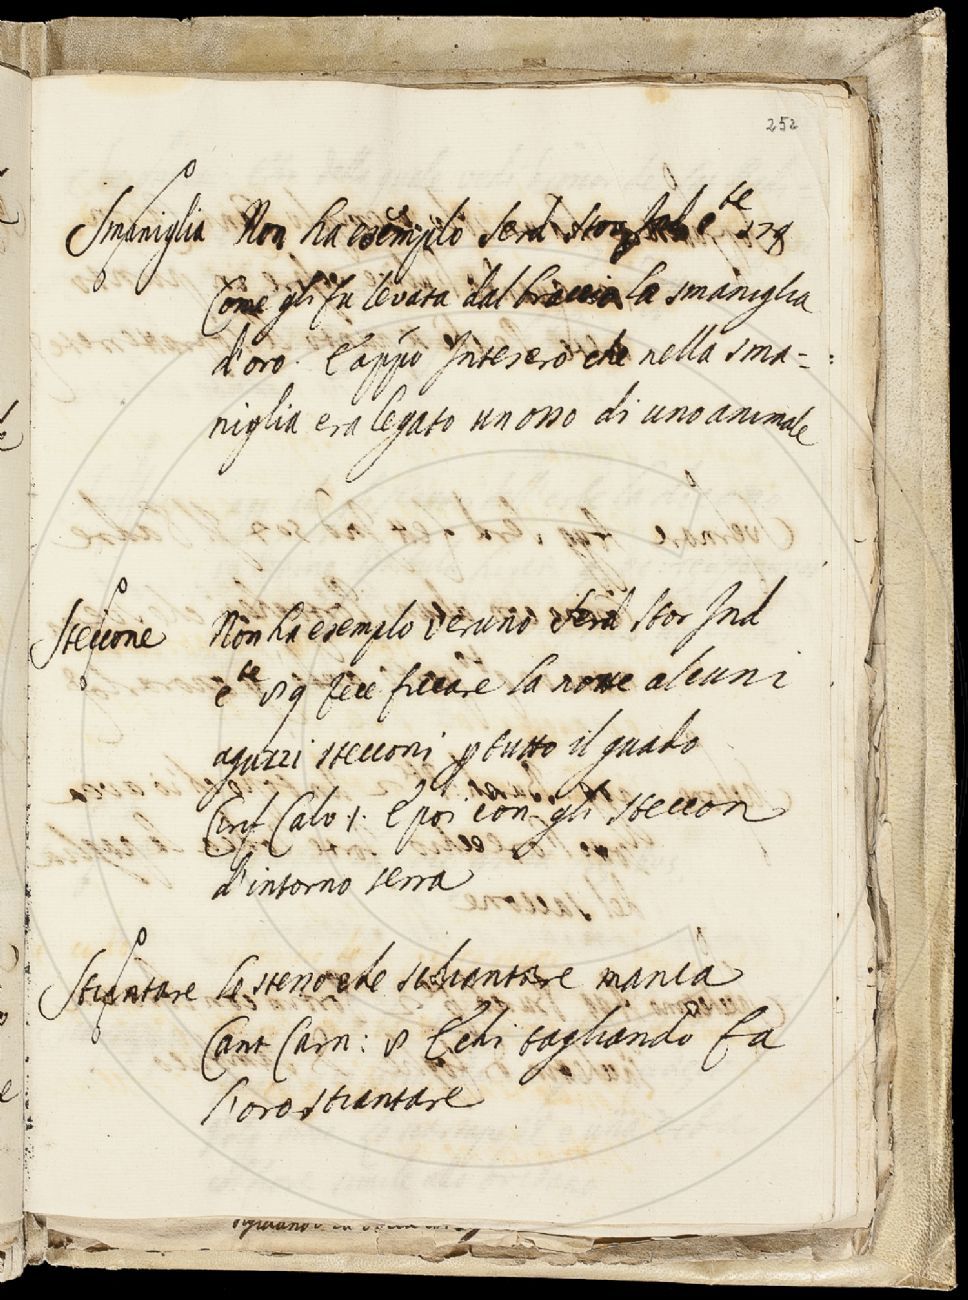 252
Smaniglia Non ha esempio Serd Stor Ind c te 178
Come gli fu levata dal braccio la smaniglia
d'oro. E appo Intesero che nella sma-
niglia era legato un osso di uno animale
Steccone Non ha esemplo veruno Serd Stor Ind
c te fece ficcare la notte alcuni
aguzzi stecconi p tutto il guado
Cirif Calv 1. E poi con gli steccon
d'intorno serra
Stiantare lo stesso che schiantare manca
Cant Carn: E chi tagliando fa
l'oro stiantare